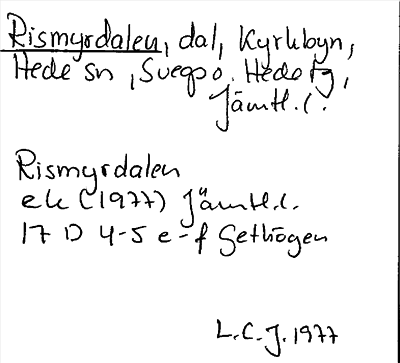 Rismyrdalen, dal, Kyrkbyn,
Hede sn, Svegs o. Hede tg,
Jämtl. l.
Rismyrdalen
ek (1977) Jämtl.l.
17 D 4-5 e-f Gethögen
L.C.J. 1977